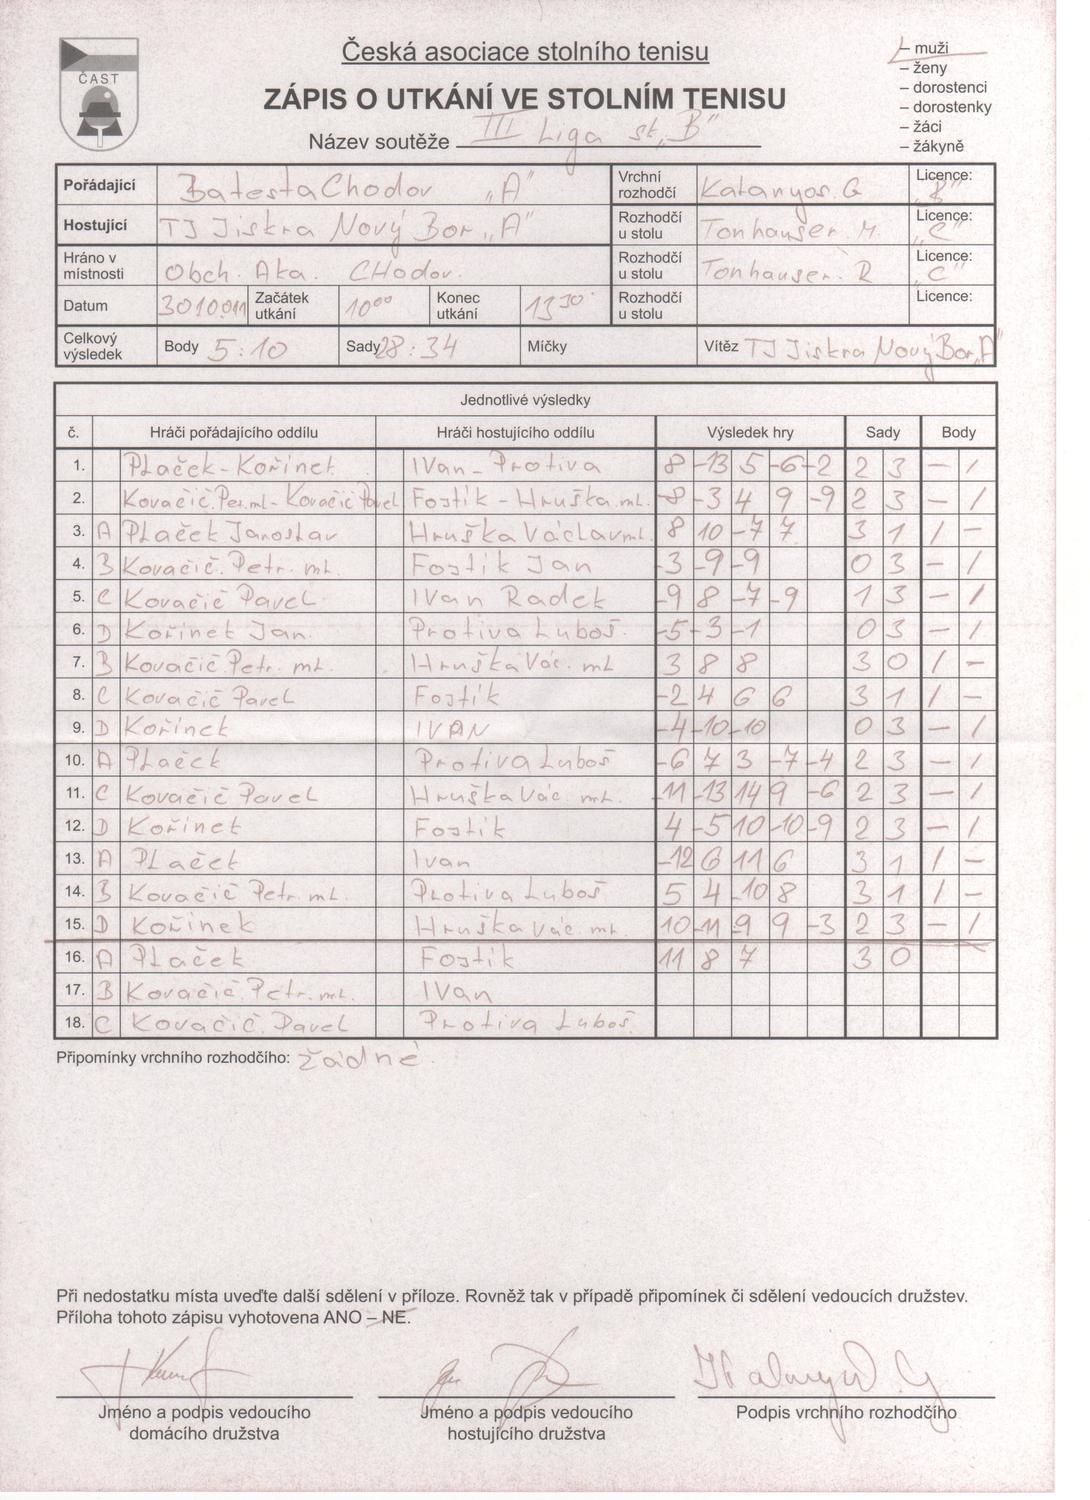 ČAST
Česká asociace stolního tenisu
ZÁPIS O UTKÁNÍ VE STOLNÍM TENISU
Název soutěže III Liga sk. „B"
– muži
– ženy
– dorostenci
– dorostenky
– žáci
– žákyně
Pořádající Batesta Chodov „A" Vrchní rozhodčí Katanyos. G Licence: „B"
Hostující TJ Jiskra Nový Bor „A" Rozhodčí u stolu Tonhauser. M. Licence: „C"
Hráno v místnosti Obch. Aka. CHodov. Rozhodčí u stolu Tonhauser. R Licence: „C"
Datum Začátek utkání 10⁰⁰ Konec utkání 13³⁰ Rozhodčí u stolu Licence:
Celkový výsledek Body 5:10 Sady 28:34 Míčky Vítěz TJ Jiskra Nový Bor „A"
Jednotlivé výsledky
č. Hráči pořádajícího oddílu Hráči hostujícího oddílu Výsledek hry Sady Body
1. PLaček-Kořínek IVan-Protiva 8 -13 5 -6 -2 2 3 – /
2. Kovačič.Petr.ml-Kovačič Pavel Fojtík-Hruška.ml. -8 -3 4 9 -9 2 3 – /
3. A PLaček Jaroslav Hruška Václav ml. 8 10 -7 7 3 1 / –
4. B Kovačič.Petr.mL. Fojtík Jan -3 -9 -9 0 3 – /
5. C Kovačič Pavel Ivan Radek -9 8 -7 -9 1 3 – /
6. D Kořínek Jan. Protiva Luboš. -5 -3 -1 0 3 – /
7. B Kovačič.Petr. mL Hruška Vác. mL 3 8 8 3 0 / –
8. C Kovačič Pavel Fojtík -2 4 6 6 3 1 / –
9. D Kořínek IVAN -4 -10 -10 0 3 – /
10. A PLaček Protiva Luboš -6 7 3 -7 -4 2 3 – /
11. C Kovačič Pavel Hruška Vác. mL. -11 -13 14 9 -6 2 3 – /
12. D Kořínek Fojtík 4 -5 10 -10 -9 2 3 – /
13. A PLaček Ivan -12 6 11 6 3 1 / –
14. B Kovačič Petr. mL. Protiva Luboš 5 4 -10 8 3 1 / –
15. D Kořínek Hruška Vác. mL. 10 -11 -9 9 -3 2 3 – /
16. A PLaček Fojtík 11 8 7 3 0
17. B Kovačič.Petr.mL. IVan
18. C Kovačič.Pavel Protiva Luboš.
Připomínky vrchního rozhodčího: žádné.
Při nedostatku místa uveďte další sdělení v příloze. Rovněž tak v případě připomínek či sdělení vedoucích družstev.
Příloha tohoto zápisu vyhotovena ANO – NE.
Jméno a podpis vedoucího domácího družstva
Jméno a podpis vedoucího hostujícího družstva
Podpis vrchního rozhodčího